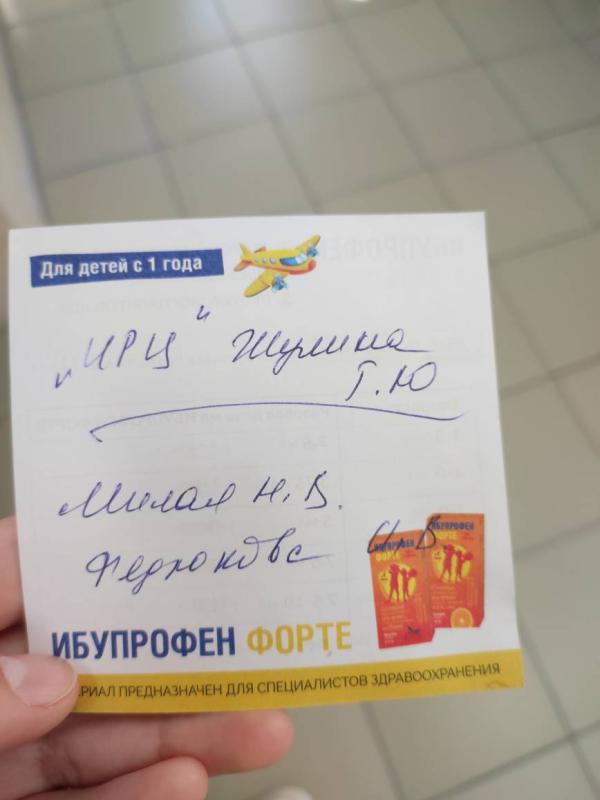 Для детей с 1 года
„ИРЦ" Жулина
Т.Ю
Милая Н.В.
Федюкова И.В
ИБУПРОФЕН
ФОРТЕ
ИБУПРОФЕН
ФОРТЕ
ИБУПРОФЕН ФОРТЕ
ЕРИАЛ ПРЕДНАЗНАЧЕН ДЛЯ СПЕЦИАЛИСТОВ ЗДРАВООХРАНЕНИЯ